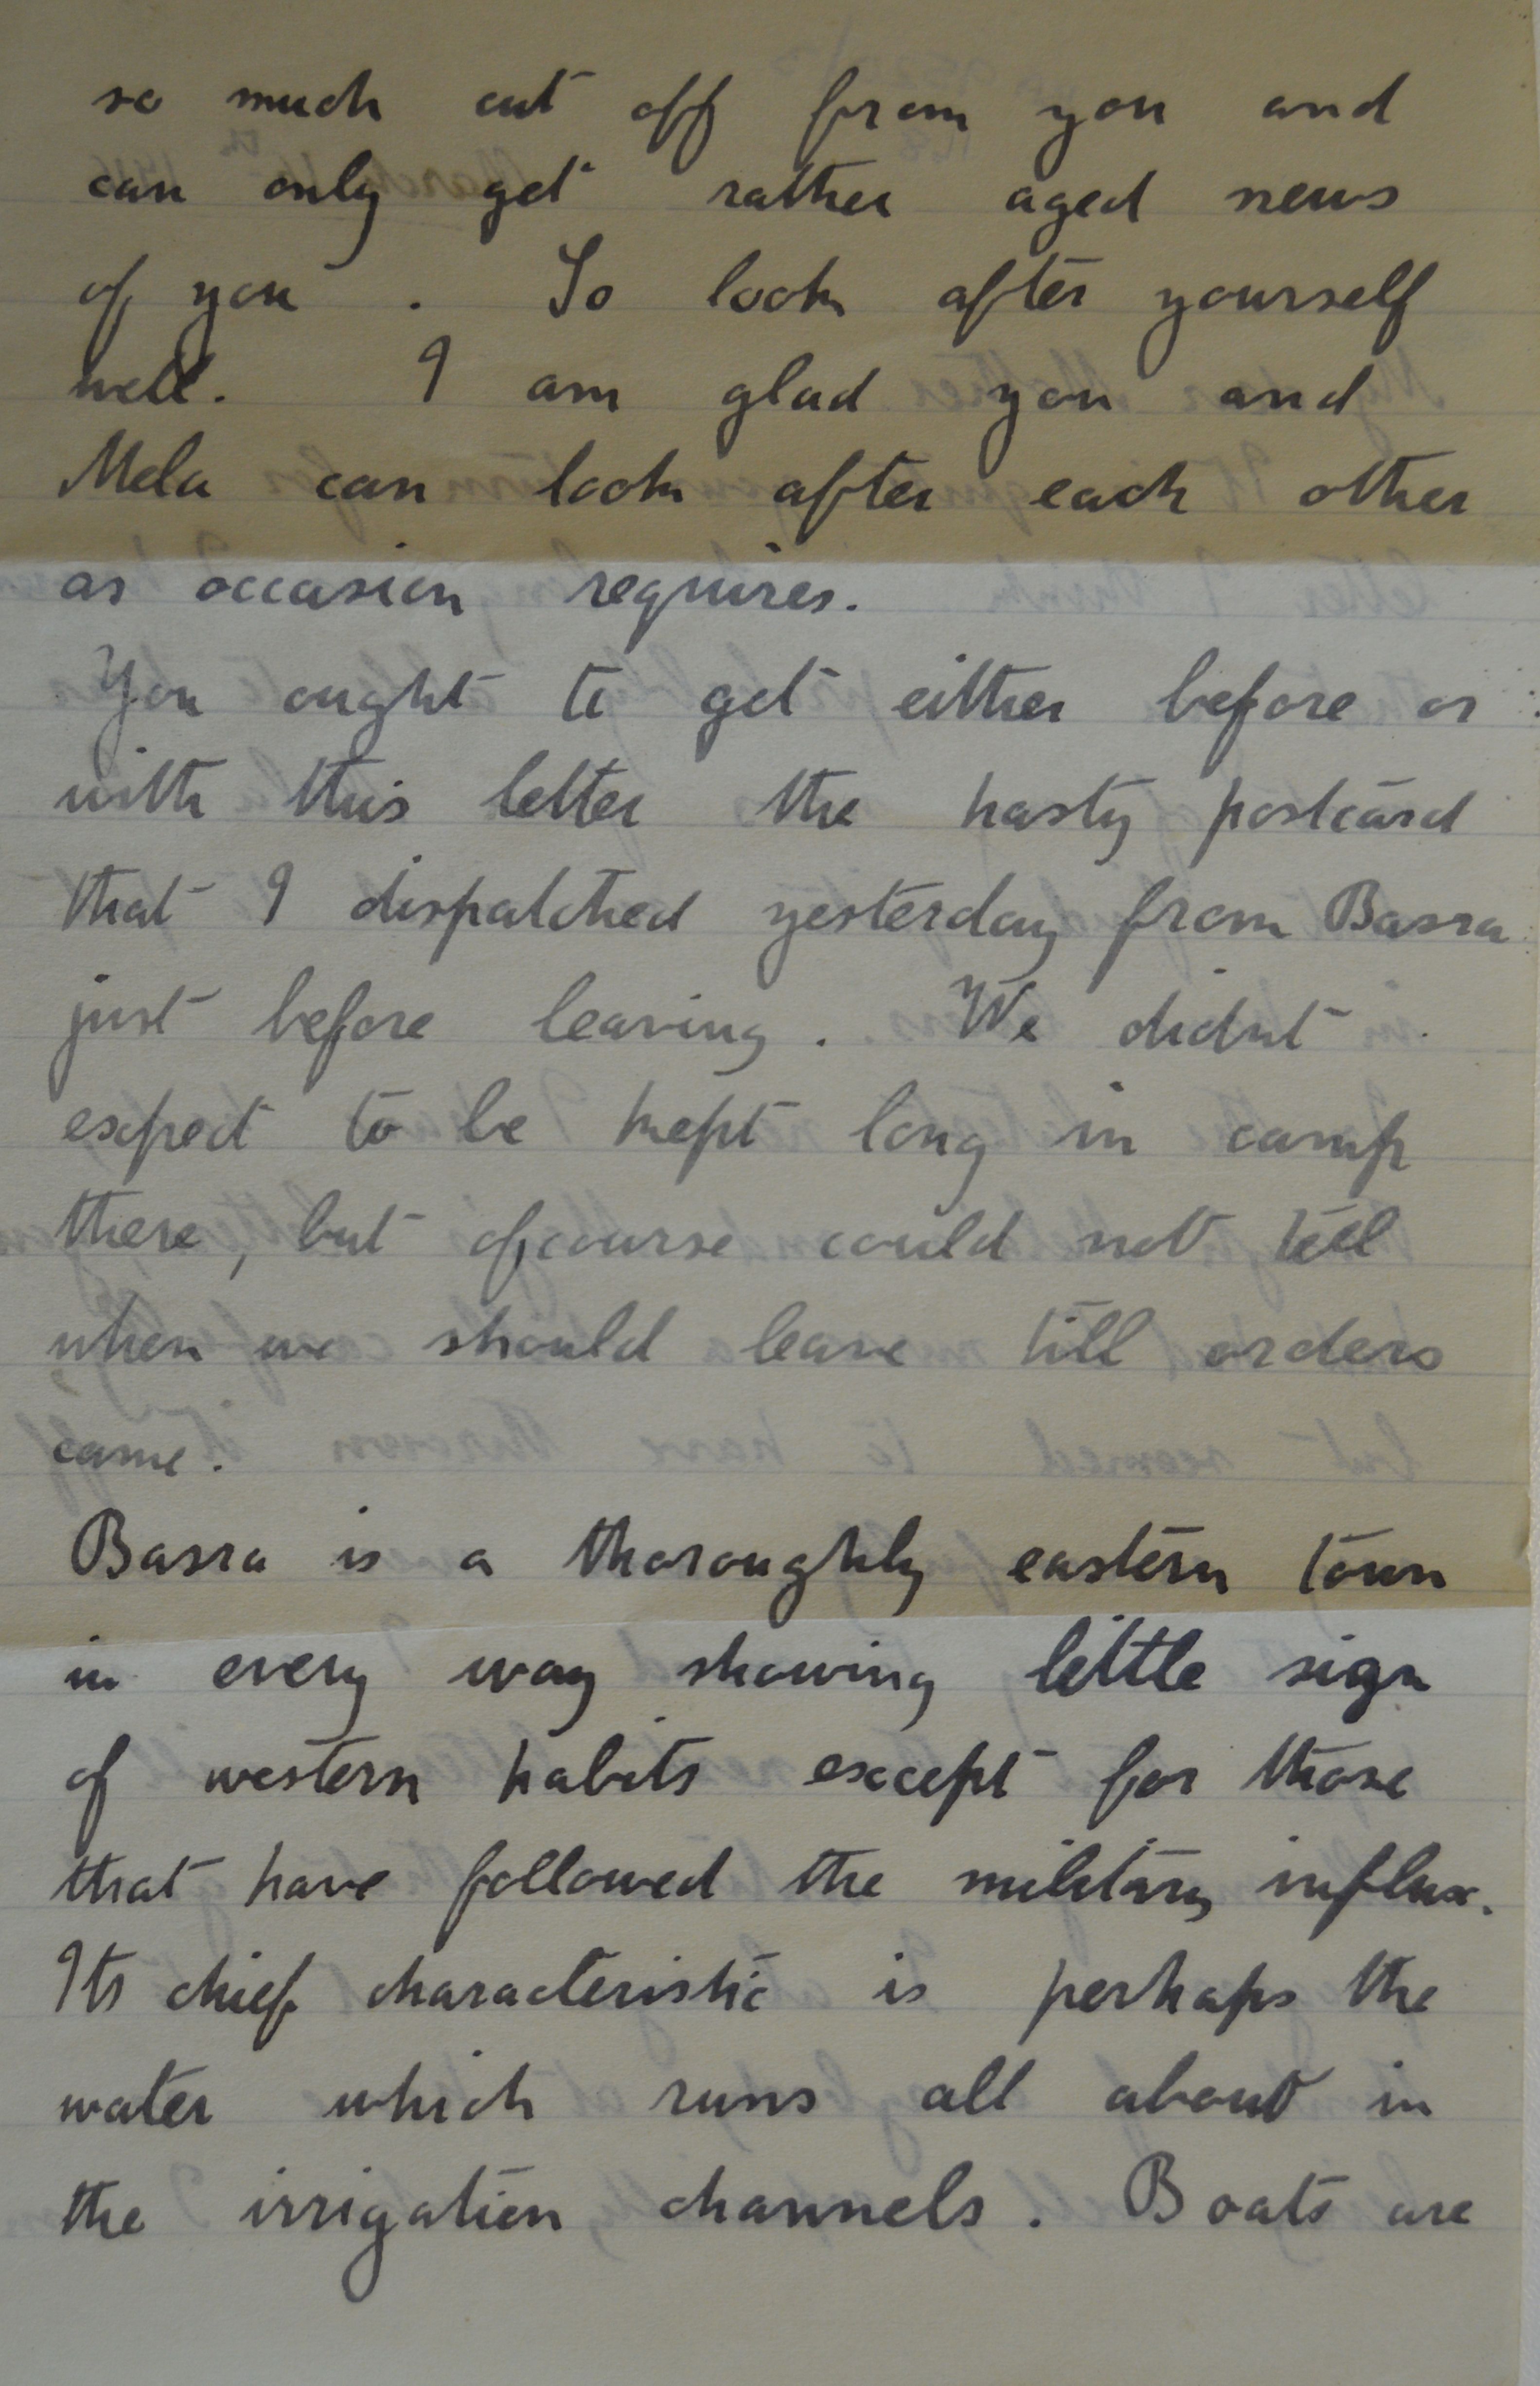 so much cut off from you and
can only get rather aged news
of you . So look after yourself
well. I am glad you and
Mela can look after each other
as occasion requires.
You ought to get either before or
with this letter the hasty postcard
that I dispatched yesterday from Basra
just before leaving . We didnt
expect to be kept long in camp
there, but ofcourse could not tell
when we should leave till orders
came.
Basra is a thoroughly eastern town
in every way showing little sign
of western habits except for those
that have followed the military influx.
Its chief characteristic is perhaps the
water which runs all about in
the irrigation channels. Boats are